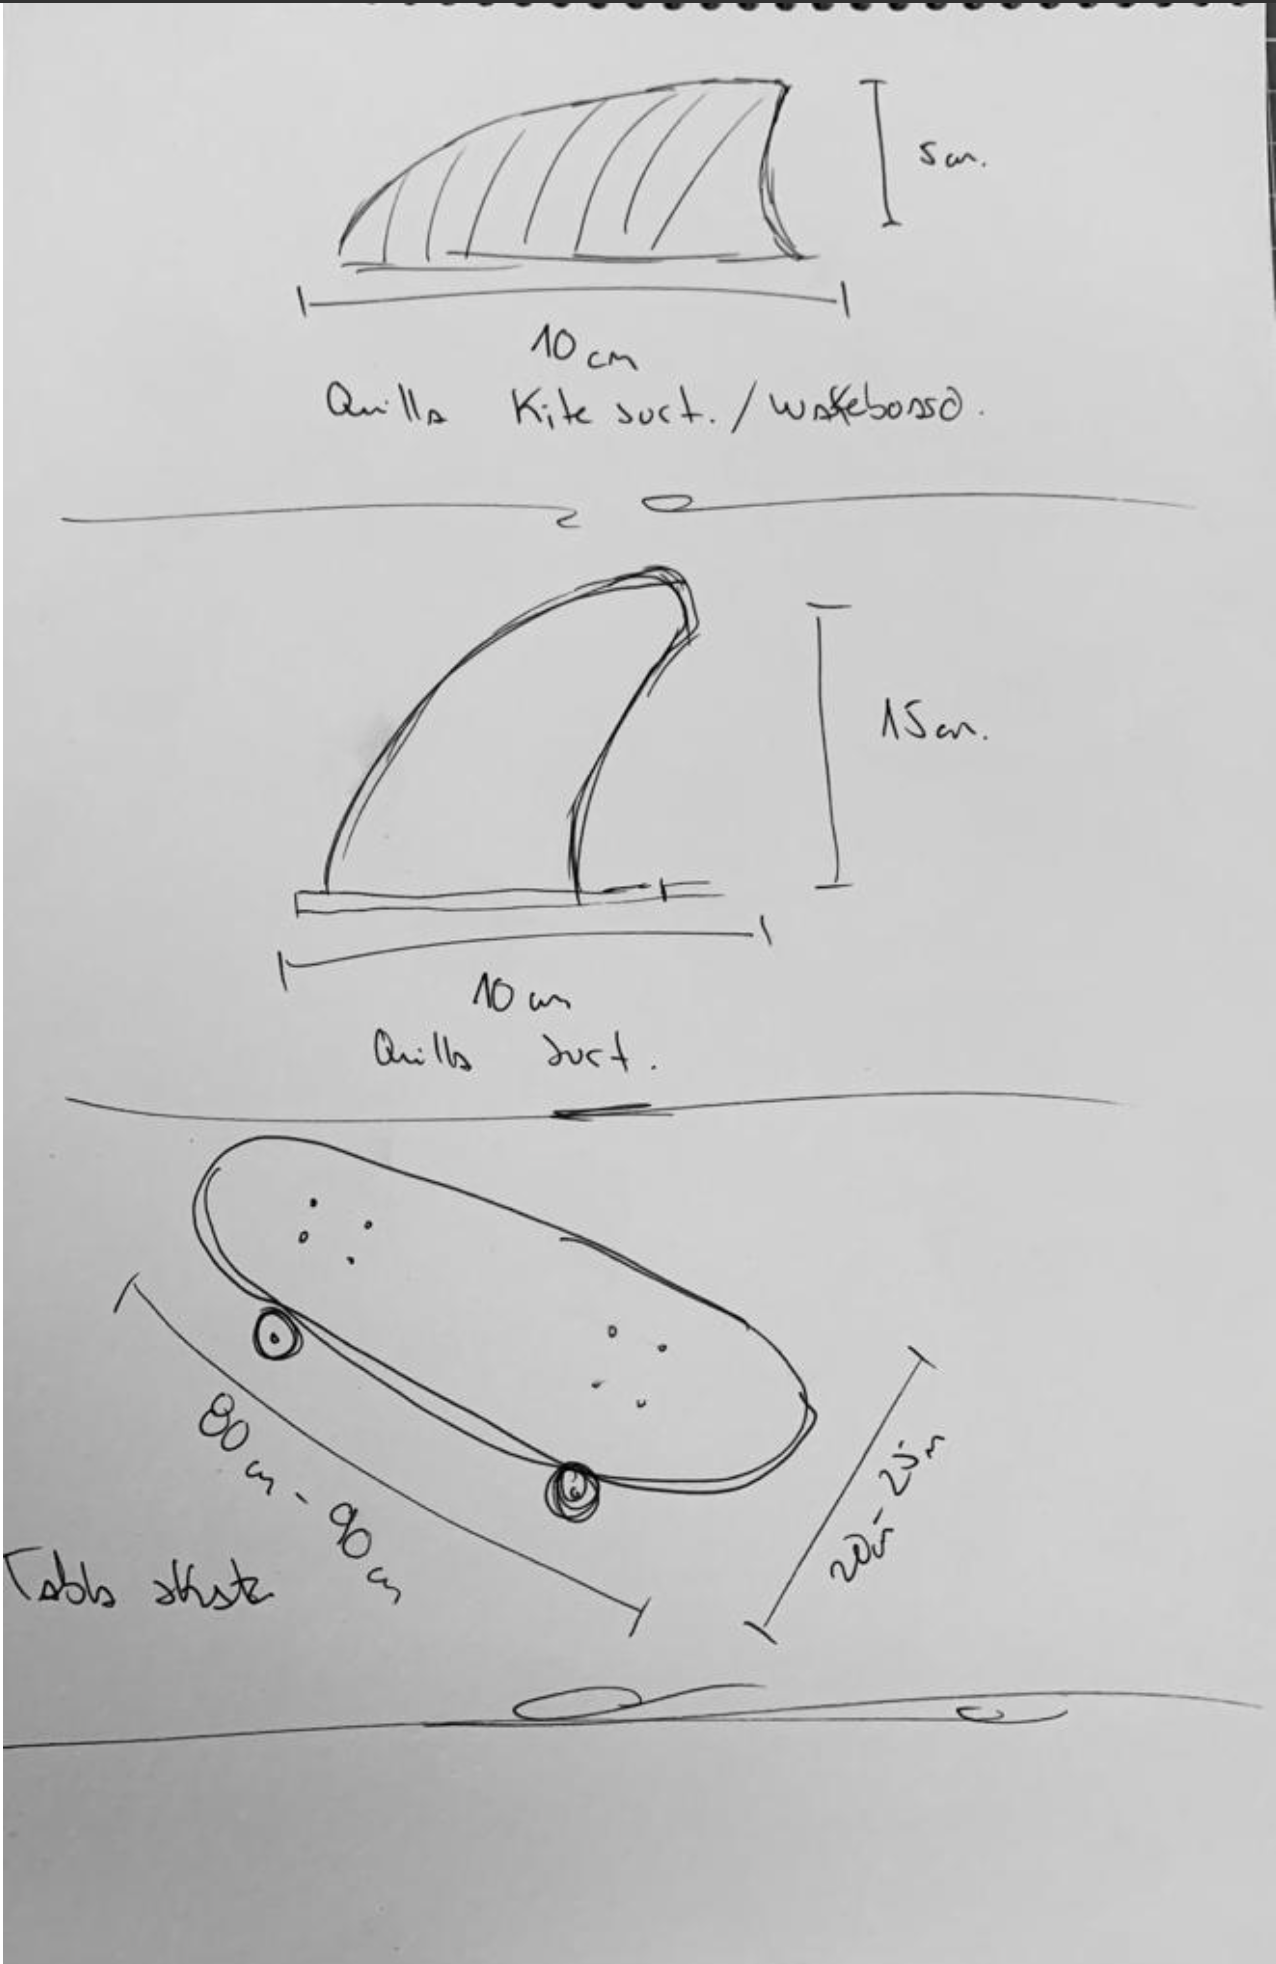 5 cm.
10 cm
Quilla Kite surf. / wakeboard.
15 cm.
10 cm
Quilla surf.
80 cm - 90 cm
20 cm - 25 cm
Tabla skate